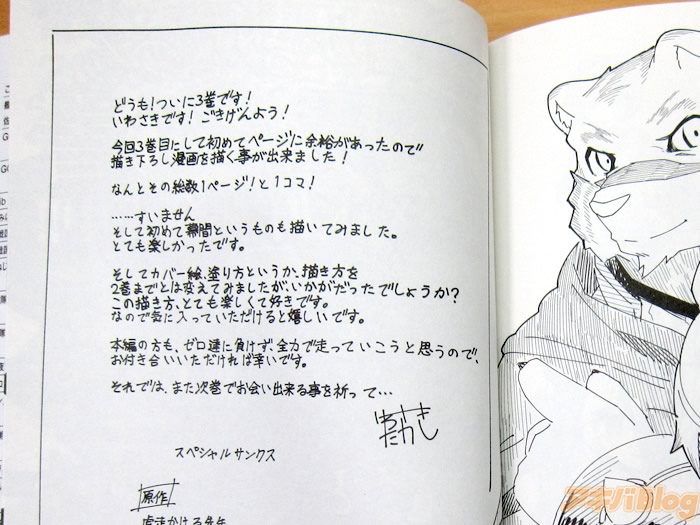 どうも!ついに3巻です!
いわさきです!ごきげんよう!
今回3巻目にして初めてページに余裕があったので
描き下ろし漫画を描く事が出来ました!
なんとその総数1ページ!と1コマ!
……すいません
そして初めて幕間というものも描いてみました。
とても楽しかったです。
そしてカバー絵、塗り方というか、描き方を
2巻までとは変えてみましたが、いかがだったでしょうか?
この描き方、とても楽しくて好きです。
なので気に入っていただけると嬉しいです。
本編の方も、ゼロ達に負けず、全力で走っていこうと思うので、
お付き合いいただければ幸いです。
それでは、また次巻でお会い出来る事を祈って…
いわさき
たかし
スペシャルサンクス
原作
虎走かける先生
アキバBlog